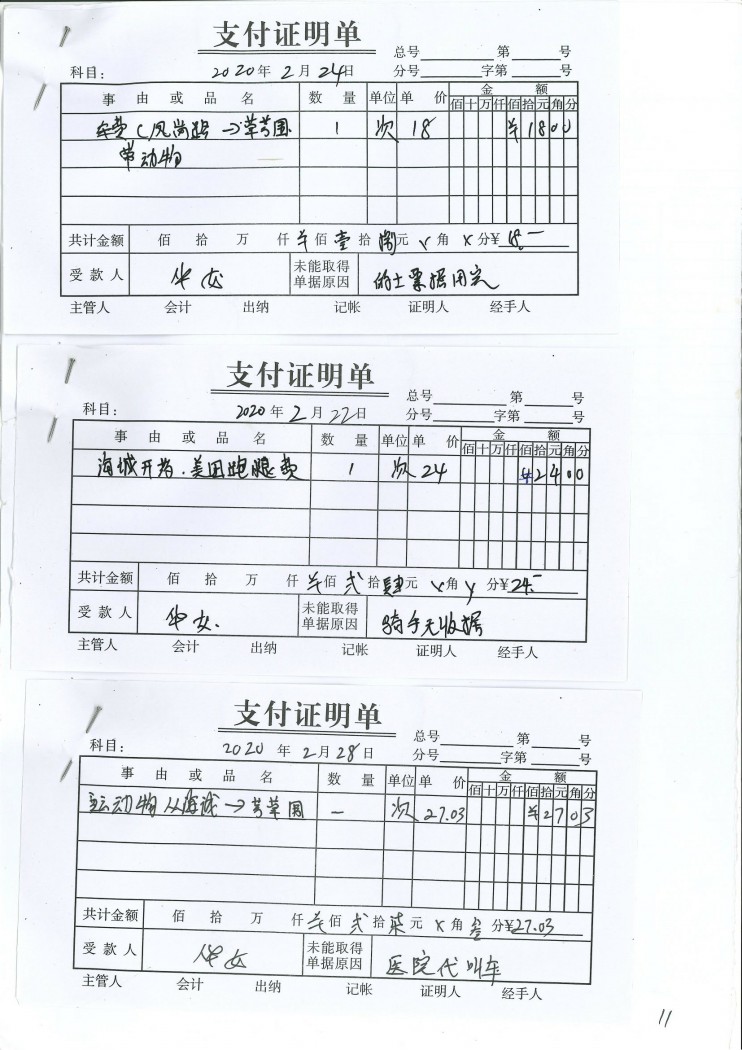 支付证明单
总号 第 号
科目: 2020年 2月 24日 分号 字第 号
事由或品名 数量 单位 单价 金额
佰十万仟佰拾元角分
车费(风尚路→草芳围 1 次 18 ¥1800
带动物
共计金额 佰 拾 万 仟 佰 壹拾捌元 角 x 分¥18.-
受款人 未能取得单据原因 的士票据用完
主管人 会计 出纳 记帐 证明人 经手人
支付证明单
总号 第 号
科目: 2020年 2月 22日 分号 字第 号
事由或品名 数量 单位 单价 金额
佰十万仟佰拾元角分
海城开药.美团跑腿费 1 次 24 ¥2400
共计金额 佰 拾 万 仟 佰 弍拾肆元 角 分¥24.-
受款人 未能取得单据原因 骑手无收据
主管人 会计 出纳 记帐 证明人 经手人
支付证明单
总号 第 号
科目: 2020年 2月 28日 分号 字第 号
事由或品名 数量 单位 单价 金额
佰十万仟佰拾元角分
运动物从海诚→芳草围 一 次 27.03 ¥2703
共计金额 佰 拾 万 仟 佰 弍拾柒元 x 角 叁 分¥27.03
受款人 未能取得单据原因 医院代叫车
主管人 会计 出纳 记帐 证明人 经手人
11